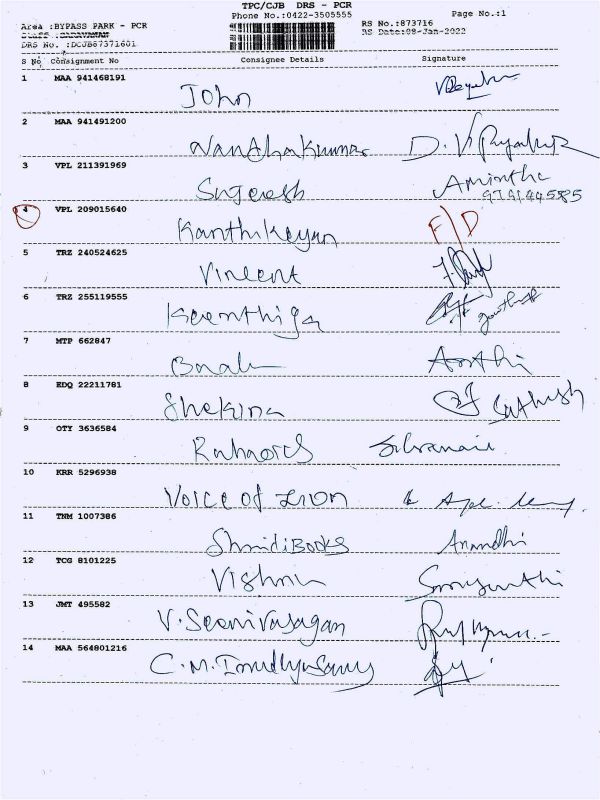 TPC/CJB DRS - PCR
Area :BYPASS PARK - PCR
Phone No.:0422-3505555
Page No.:1
RS No.:873716
DRS No. :DCJB87371601
RS Date:08-Jan-2022
S No Consignment No Consignee Details Signature
1 MAA 941468191 John
2 MAA 941491200 Nanthakumar
3 VPL 211391969 Sujeesh Amintha
9791445585
4 VPL 209015640 Kanthikeyan F/D
5 TRZ 240524625 Vincent
6 TRZ 255119555 Keenthiga
7 MTP 662847
8 EDQ 22211781 Shekina Sathish
9 OTY 3636584
10 KRR 5296938 Voice of Zion
11 TNM 1007386 Anandhi
12 TCG 8101225 Vishnu
13 JMT 495582 V. Seenivasagan
14 MAA 564801216